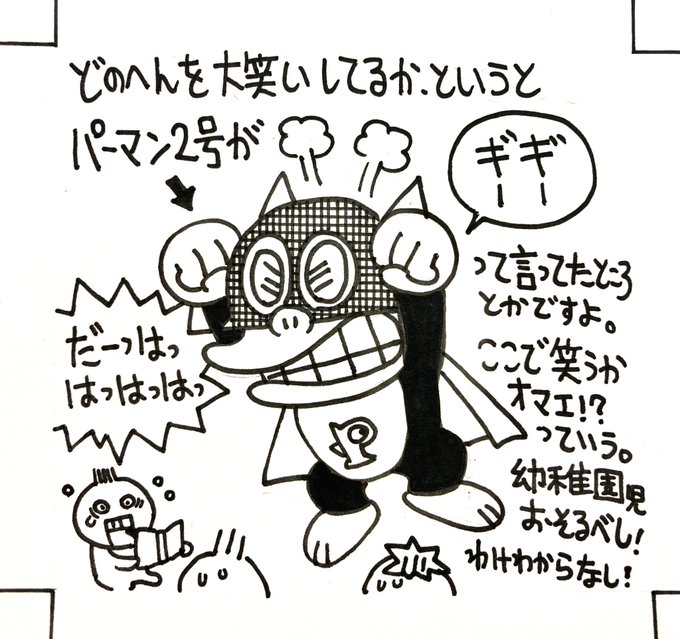 どのへんを大笑いしてるか、というと
パーマン2号が
ギギーー
って言ってたところ
とかですよ。
ここで笑うか
オマエ!?
っていう。
幼稚園児
おそるべし!
わけわからなし!
だーっはっ
はっはっはっ
P